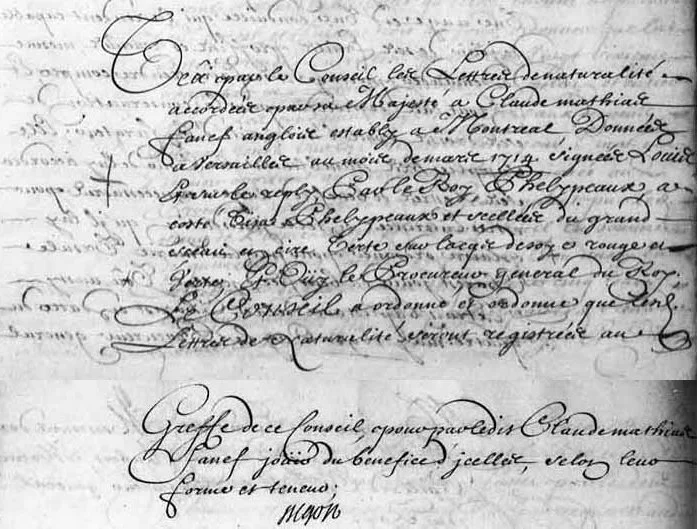 Veu par le Conseil les Lettres de naturalité
accordées par sa Majesté a Claude mathias
fanef anglois establÿ a Montreal, Données
a Versailles au mois de mars 1714. signées Louis
sur le reply Par le Roy Phelypeaux, a
costé Visa Phelypeaux et scellées du grand
sceau en cire verte sur lacqs de soye rouge et
verte; Et Ouÿ le Procureur general du Roy.
Le Conseil a ordonné et ordonne que lesd.
Lettres de Naturalité seront registrées au
Greffe de ce Conseil, pour par ledit Claude mathias
fanef jouir du benefice d'jcelles, selon leur
forme et teneur;